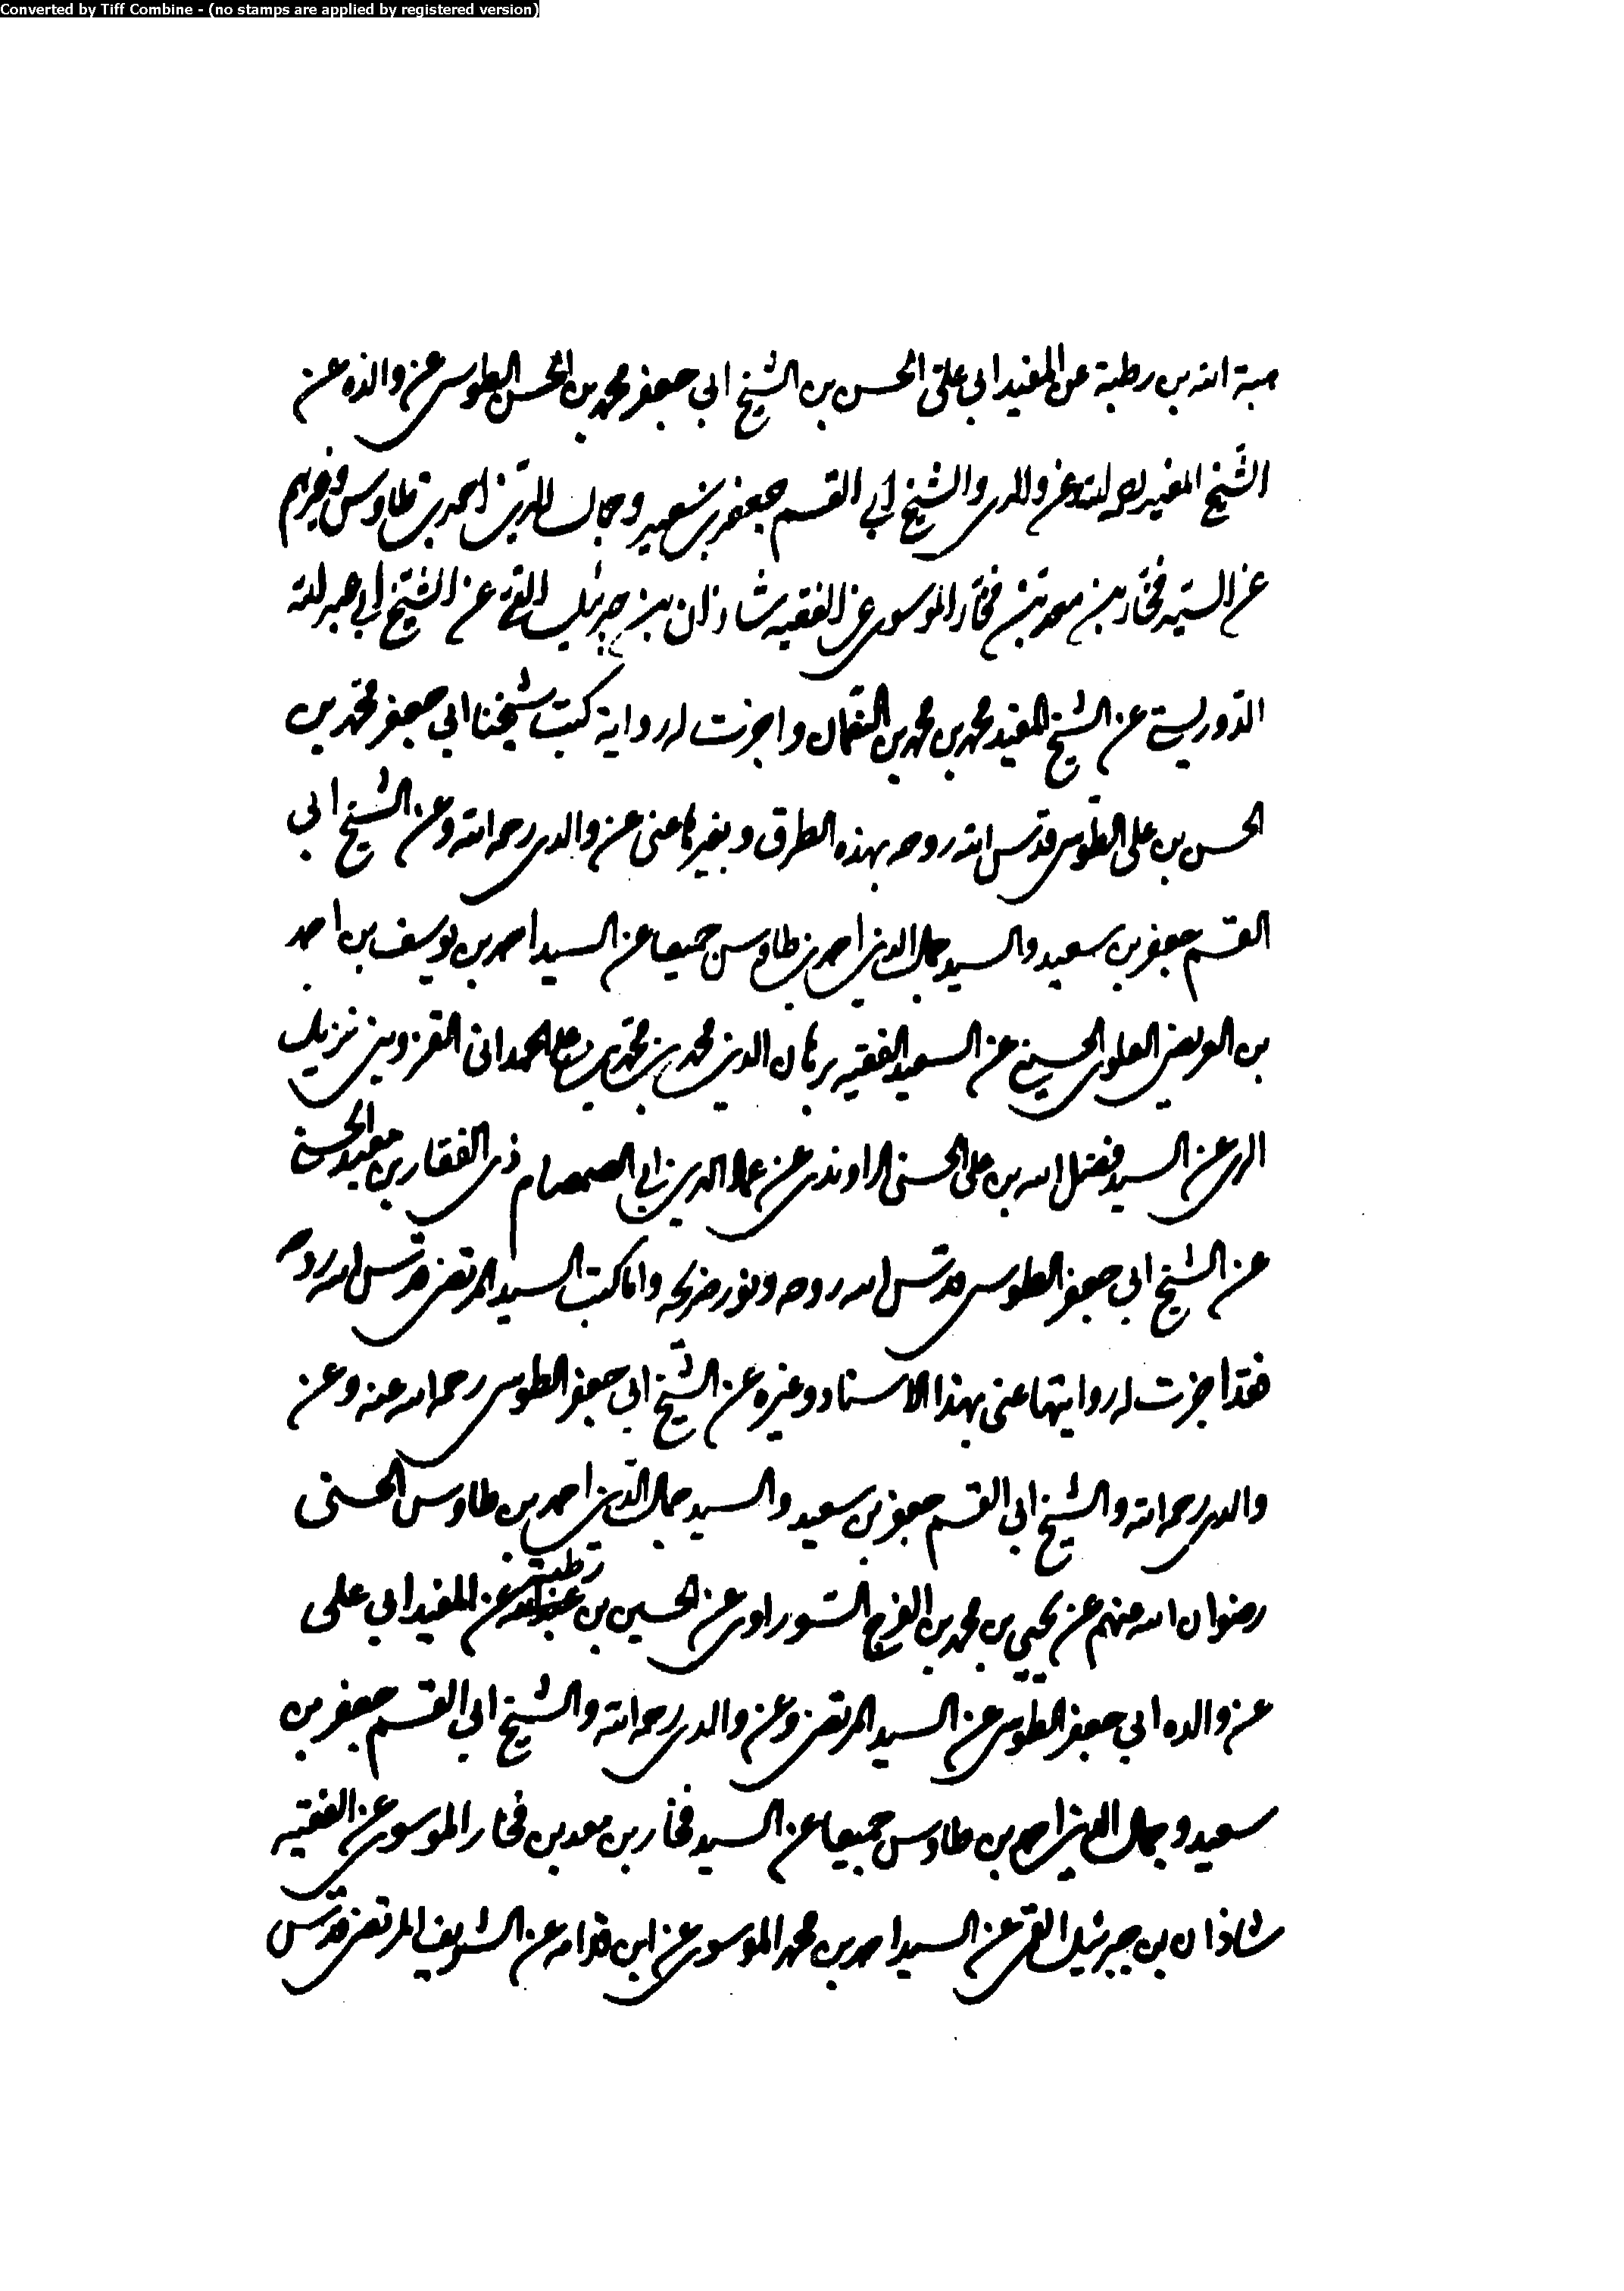 Converted by Tiff Combine - (no stamps are applied by registered version)
هبة الله بن رطبة عن المفيد ابي علي الحسن بن الشيخ ابي جعفر محمد بن الحسن الطوسي عن والده عن
الشيخ المفيد رحمه الله وعن والدي والشيخ ابي القسم جعفر بن سعيد وجمال الدين احمد بن طاوس وغيرهم
عن السيد فخار بن معد بن فخار الموسوي عن الفقيه شاذان بن جبرئيل القمي عن الشيخ ابي عبد الله
الدوريستي عن الشيخ المفيد محمد بن محمد بن النعمان واجزت له رواية كتب شيخنا ابي جعفر محمد بن
الحسن بن علي الطوسي قدس الله روحه بهذه الطرق وبغيرها عني عن والدي رحمه الله وعن الشيخ ابي
القسم جعفر بن سعيد والسيد جمال الدين احمد بن طاوس جميعا عن السيد احمد بن يوسف بن احمد
بن العريضي العلوي الحسيني عن السعيد الفقيه برهان الدين محمد بن محمد بن علي الحمداني القزويني نزيل
الري عن السيد فضل الله بن علي الحسني الراوندي عن عماد الدين ابي الصمصام ذي الفقار بن معبد الحسني
عن الشيخ ابي جعفر الطوسي قدس الله روحه ونور ضريحه واما كتب السيد المرتضى قدس الله روحه
فقد اجزت له روايتها عني بهذا الاسناد وغيره عن الشيخ ابي جعفر الطوسي رحمه الله عنه وعن
والدي رحمه الله والشيخ ابي القسم جعفر بن سعيد والسيد جمال الدين احمد بن طاوس الحسني
رضوان الله عنهم عن يحيى بن محمد بن الفرج السوراوي عن الحسين بن رطبة عن المفيد ابي علي
عن والده ابي جعفر الطوسي عن السيد المرتضى وعن والدي رحمه الله والشيخ ابي القسم جعفر بن
سعيد وجمال الدين احمد بن طاوس جميعا عن السيد فخار بن معد بن فخار الموسوي عن الفقيه
شاذان بن جبرئيل القمي عن السيد احمد بن محمد الموسوي عن ابن قدامه عن الشريف المرتضى قدس